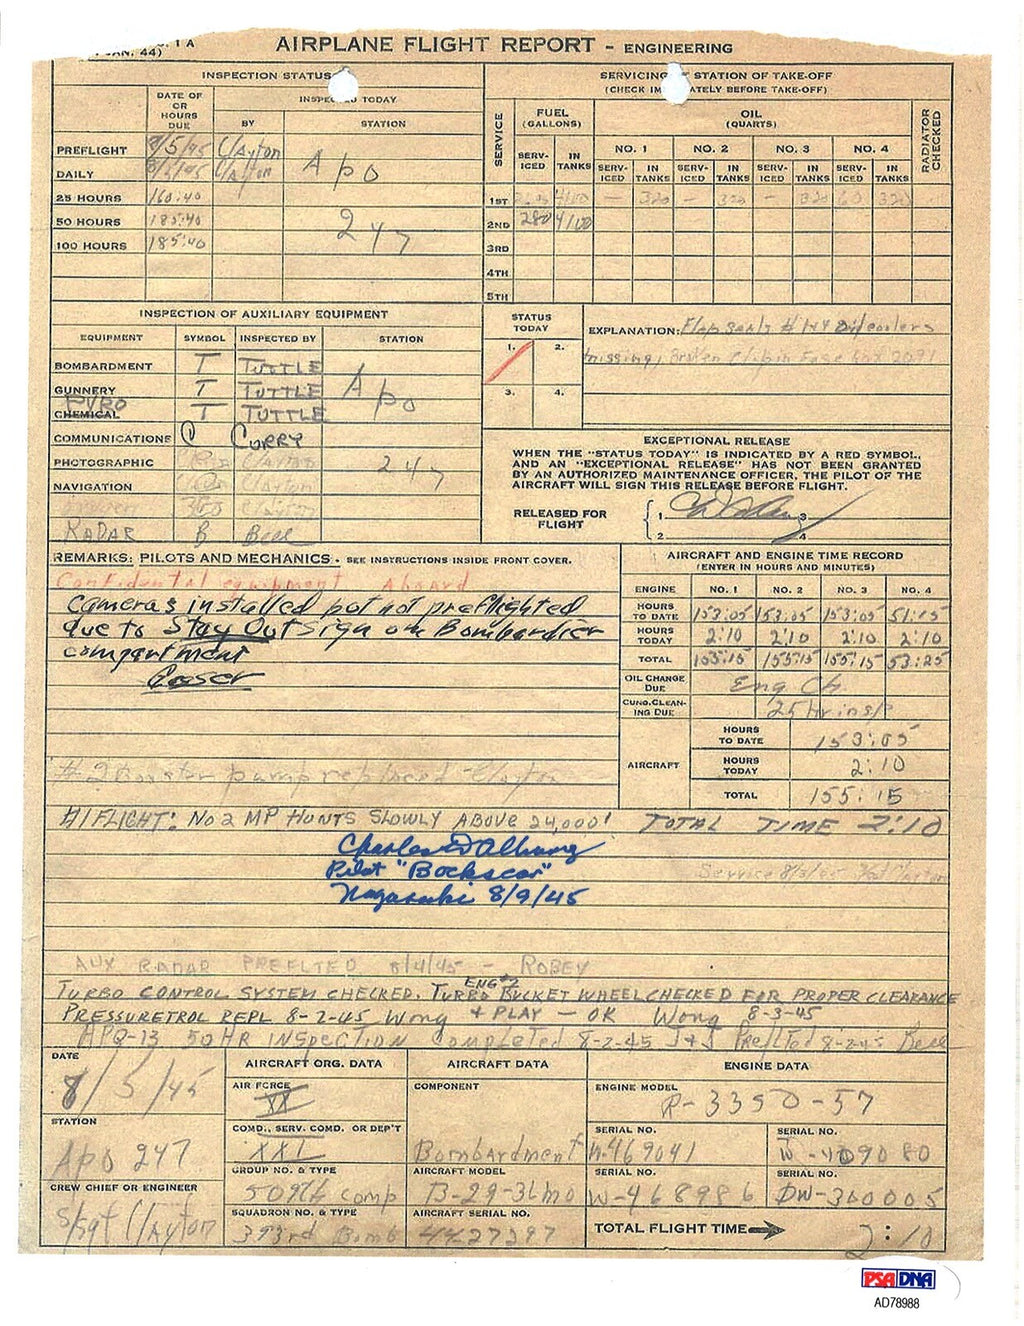 1 A
JAN. 44)
AIRPLANE FLIGHT REPORT - ENGINEERING
INSPECTION STATUS
DATE OF OR HOURS DUE
INSPECTED TODAY
BY
STATION
PREFLIGHT 8/5/45 Clayton Apo
DAILY 8/5/45 Clayton
25 HOURS 160:40
50 HOURS 185:40 247
100 HOURS 185:40
SERVICING STATION OF TAKE-OFF
(CHECK IMMEDIATELY BEFORE TAKE-OFF)
SERVICE
FUEL (GALLONS)
OIL (QUARTS)
RADIATOR CHECKED
NO. 1 NO. 2 NO. 3 NO. 4
SERV-ICED IN TANKS SERV-ICED IN TANKS SERV-ICED IN TANKS SERV-ICED IN TANKS SERV-ICED IN TANKS
1ST 4100 — 320 — 320 — 320 60 320
2ND 280 4100
3RD
4TH
5TH
INSPECTION OF AUXILIARY EQUIPMENT
EQUIPMENT SYMBOL INSPECTED BY STATION
BOMBARDMENT T TUTTLE
GUNNERY T TUTTLE Apo
PYRO
CHEMICAL T TUTTLE
COMMUNICATIONS C CURRY
PHOTOGRAPHIC Clayton 247
NAVIGATION Clayton
Clayton
RADAR B Bell
STATUS TODAY
1. 2.
3. 4.
EXPLANATION: Flap seals #1+4 Oil coolers
missing, Broken Clip in Fuse box
EXCEPTIONAL RELEASE
WHEN THE "STATUS TODAY" IS INDICATED BY A RED SYMBOL,
AND AN "EXCEPTIONAL RELEASE" HAS NOT BEEN GRANTED
BY AN AUTHORIZED MAINTENANCE OFFICER, THE PILOT OF THE
AIRCRAFT WILL SIGN THIS RELEASE BEFORE FLIGHT.
RELEASED FOR FLIGHT
1 3
2 4
REMARKS: PILOTS AND MECHANICS - SEE INSTRUCTIONS INSIDE FRONT COVER.
Confidental equipment Aboard
Cameras installed but not preflighted
due to Stay Out Sign on Bombardier
compartment
#2 Booster pump replaced - Clayton
AIRCRAFT AND ENGINE TIME RECORD
(ENTER IN HOURS AND MINUTES)
ENGINE NO. 1 NO. 2 NO. 3 NO. 4
HOURS TO DATE 153:05 153:05 153:05 51:15
HOURS TODAY 2:10 2:10 2:10 2:10
TOTAL 155:15 155:15 155:15 53:25
OIL CHANGE DUE Eng Ch
CUNO. CLEAN-ING DUE 25 hr insp
AIRCRAFT
HOURS TO DATE 153:05
HOURS TODAY 2:10
TOTAL 155:15
#1 FLIGHT: NO 2 MP HUNTS SLOWLY ABOVE 24,000' TOTAL TIME 2:10
Charles D Albury
Pilot "Bockscar"
Nagasaki 8/9/45
Service 8/5/45
AUX RADAR PREFLTED 8/4/45 - ROBEY
TURBO CONTROL SYSTEM CHECKED. TURBO ENG #2 BUCKET WHEEL CHECKED FOR PROPER CLEARANCE
PRESSURETROL REPL 8-2-45 Wong + PLAY — OK Wong 8-3-45
APQ-13 50 HR INSPECTION Completed 8-2-45 Preflted 8-2-45 Bell
DATE
8/5/45
STATION
Apo 247
CREW CHIEF OR ENGINEER
S/Sgt Clayton
AIRCRAFT ORG. DATA
AIR FORCE
XX
COMD., SERV. COMD. OR DEP'T
XXI
GROUP NO. & TYPE
509th comp
SQUADRON NO. & TYPE
393rd Bomb
AIRCRAFT DATA
COMPONENT
Bombardment
AIRCRAFT MODEL
B-29-36mo
AIRCRAFT SERIAL NO.
4427297
ENGINE DATA
ENGINE MODEL
R-3350-57
SERIAL NO. W-469041
SERIAL NO.
SERIAL NO. W-468986
SERIAL NO. DW-300005
TOTAL FLIGHT TIME 2:10
PSA DNA
AD78988